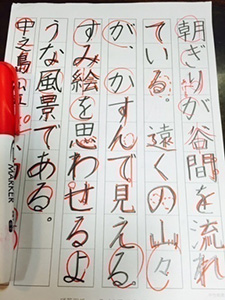 朝ぎりが谷間を流れ
ている。遠くの山々
が、かすんで見える。
すみ絵を思わせるよ
うな風景である。
中之島
MARKER